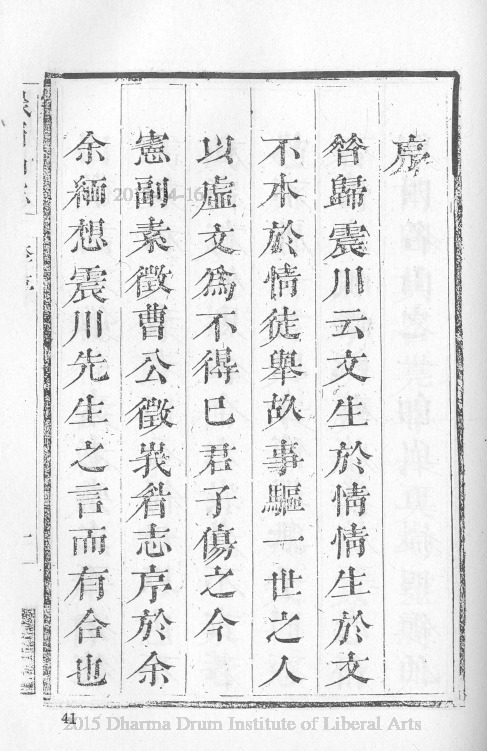 序
昝歸震川云文生於情情生於文
不本於情徒舉故事驅一世之人
以虛文為不得已君子傷之今
憲副素徵曹公徵峩眷志序於余
余緬想震川先生之言而有合也
41
2015 Dharma Drum Institute of Liberal Arts